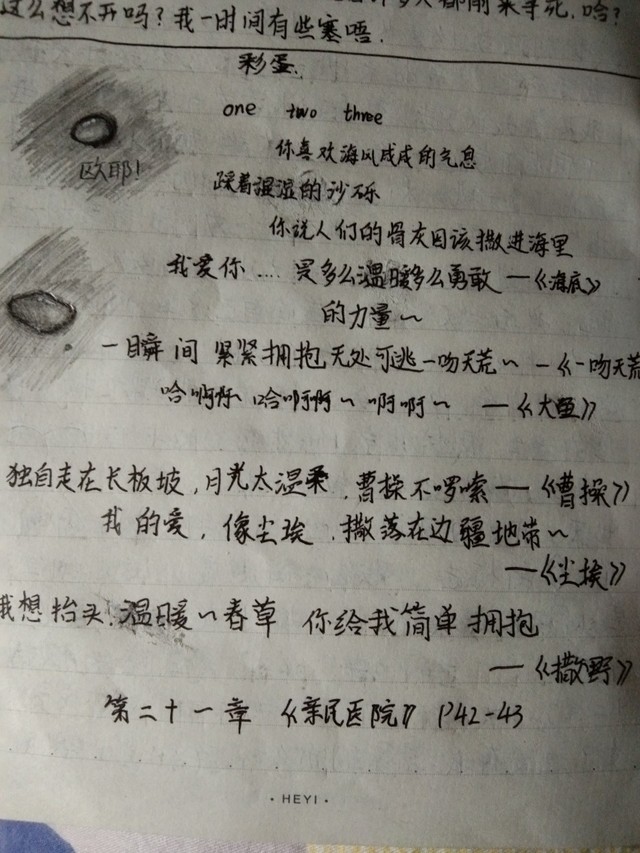 这么想不开吗？我一时间有些寒唔．
彩蛋．
one two three
欧耶！
你喜欢海风咸咸的气息
踩着湿湿的沙砾
你说人们的骨灰因该撒进海里
我爱你 .... 是多么温暖多么勇敢 —《海底》
的力量～
一瞬间 紧紧拥抱，无处可逃一吻天荒～ —《一吻天荒
哈啊啊 哈啊啊～ 啊啊～ —《大鱼》
独自走在长板坡，月光太温柔，曹操不啰嗦—《曹操》
我的爱，像尘埃，撒落在边疆地带～
—《尘挨》
我想抬头，温暖～春草 你给我简单拥抱
—《撒野》
第二十一章 《亲民医院》 P42-43
· HEYI ·